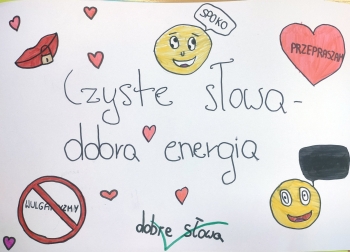 SPOKO
PRZEPRASZAM
Czyste słowa-
dobra energia
WULGARYZMY
dobre słowa